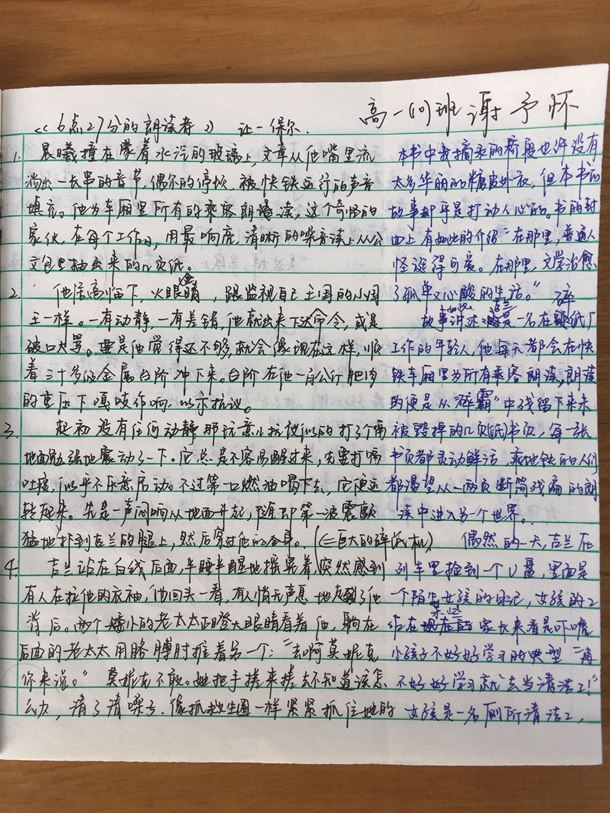 高一(1)班 谢予怀
《6点27分的朗读者》 让一保尔
1. 晨曦撞在蒙着水汽的玻璃上，文章从他嘴里流
淌出一长串的音节，偶尔的停顿，被快铁运行的声音
填充。他为车厢里所有的乘客朗诵读，这个奇怪的
家伙，在每个工作日，用最响亮、清晰的嗓音读上从公
文包里抽出来的几页纸。
2. 他居高临下，火眼金睛，跟监视自己王国的小国
王一样。一有动静，一有差错，他就出来下达命令，或是
破口大骂。要是他觉得还不够，就会像现在这样，顺
着三十多级金属台阶冲下来。台阶在他一百公斤肥肉
的重压下嘎吱作响，以示抗议。
3. 起初没有任何动静，那玩意儿抗议似的打了个嗝
地面勉强地震动了一下。它总是不容易醒过来，先要打嗝
吐痰，似乎不乐意启动，不过第一口燃油喝下去，它便运
转起来。先是一声闷响从地面升起，随即第一波震颤
猛地扑到吉兰的腿上，然后穿过他的全身。(巨大的碎纸机)
4. 吉兰站在白线后面，半睡半醒地摇晃着，突然感到
有人在拉他的衣袖，他回头一看，有人悄无声息地在他
背后。两个矮小的老太太正瞪大眼睛看着他，躲在
后面的老太太用胳膊肘推着另一个：“去啊莫妮克
你来说。”莫妮克不敢。她把手搓来搓去不知道该怎
么办，清了清嗓子，像抓救生圈一样紧紧抓住她的
本书中我摘录的桥段也许没有
太多华丽的糖皮外衣，但本书的
故事却乎是打动人心的。书的封
面上有如此的介绍“在那里，普通人
怪诞得可爱。在那里，文学治愈
了孤单又心酸的生活。”
故事讲述一名在碎纸厂
工作的年轻人，他每天都会在快
铁车厢里为所有乘客朗读，朗读
的便是从“碎霸”中残留下来未
被毁掉的几页纸书页，每一张
书页都灵动鲜活，乘地铁的人们
都渴望从一两页断简残编的朗
读中进入另个世界。
偶然的一天，吉兰在
列车里捡到一个U盘，里面是
一个陌生女孩的日记，女孩的工
作在家长来看是吓唬
小孩子不好好学习的典型“再
不好好学习就去当清洁工！”
女孩是一名厕所清洁工，